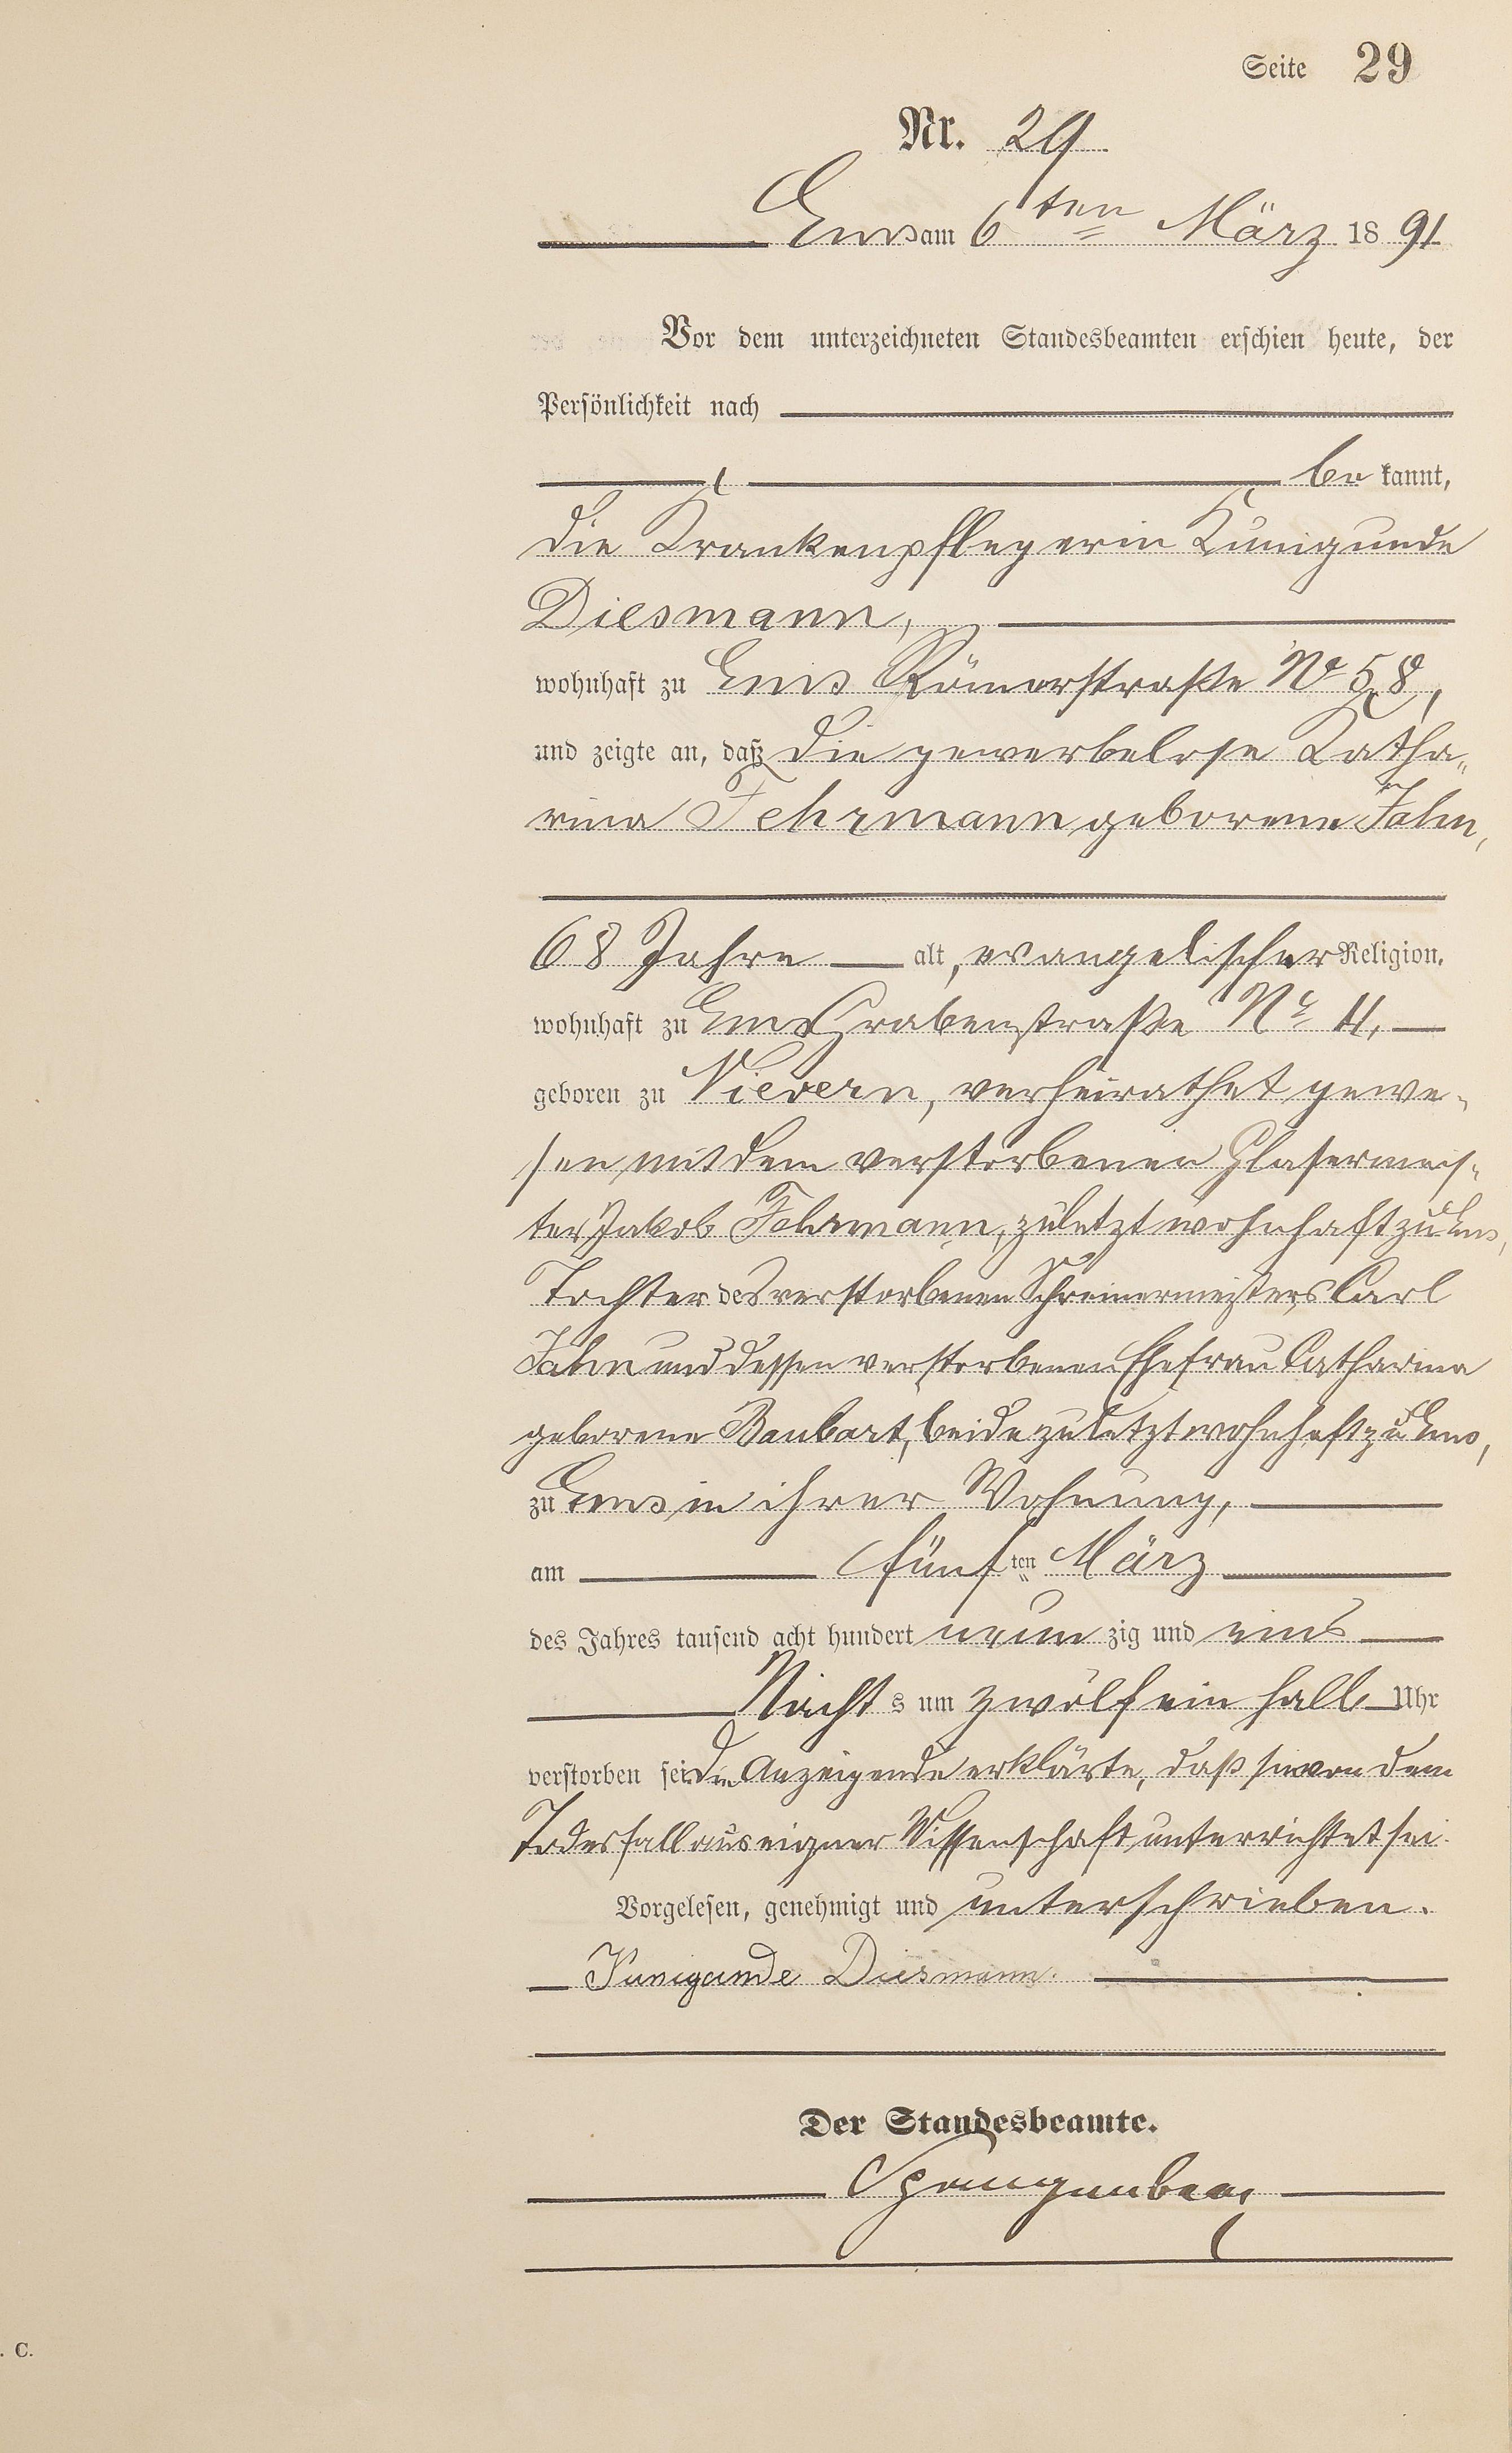 Seite 29
Nr. 29
Ems am 6ten März 1891
Vor dem unterzeichneten Standesbeamten erschien heute, der
Persönlichkeit nach
be kannt,
die Krankenpflegerin Kunigunde
Diesmann,
wohnhaft zu Ems Römerstraße No 58,
und zeigte an, daß die gewerbelose Katha„
rina Fehrmann geborene Jahn,
68 Jahre alt, evangelischer Religion,
wohnhaft zu Ems Grabenstraße No 11,
geboren zu Nievern, verheirathet gewe-
sen mit dem verstorbenen Glasermeis-
ter Jakob Fehrmann, zuletzt wohnhaft zu Ems,
Tochter des verstorbenen Schreinermeisters Carl
Jahn und dessen verstorbenen Ehefrau Catharina
geborene Baubart, beide zuletzt wohnhaft zu Ems,
zu Ems in ihrer Wohnung,
am fünften März
des Jahres tausend acht hundert neun zig und eins
Nacht s um zwölf ein halb Uhr
verstorben sei. Die Anzeigende erklärte, daß sie von dem
Todesfall aus eigner Wissenschaft unterrichtet sei.
Vorgelesen, genehmigt und unterschrieben.
Kunigunde Diesmann.
Der Standesbeamte.
Spangenberg
. C.